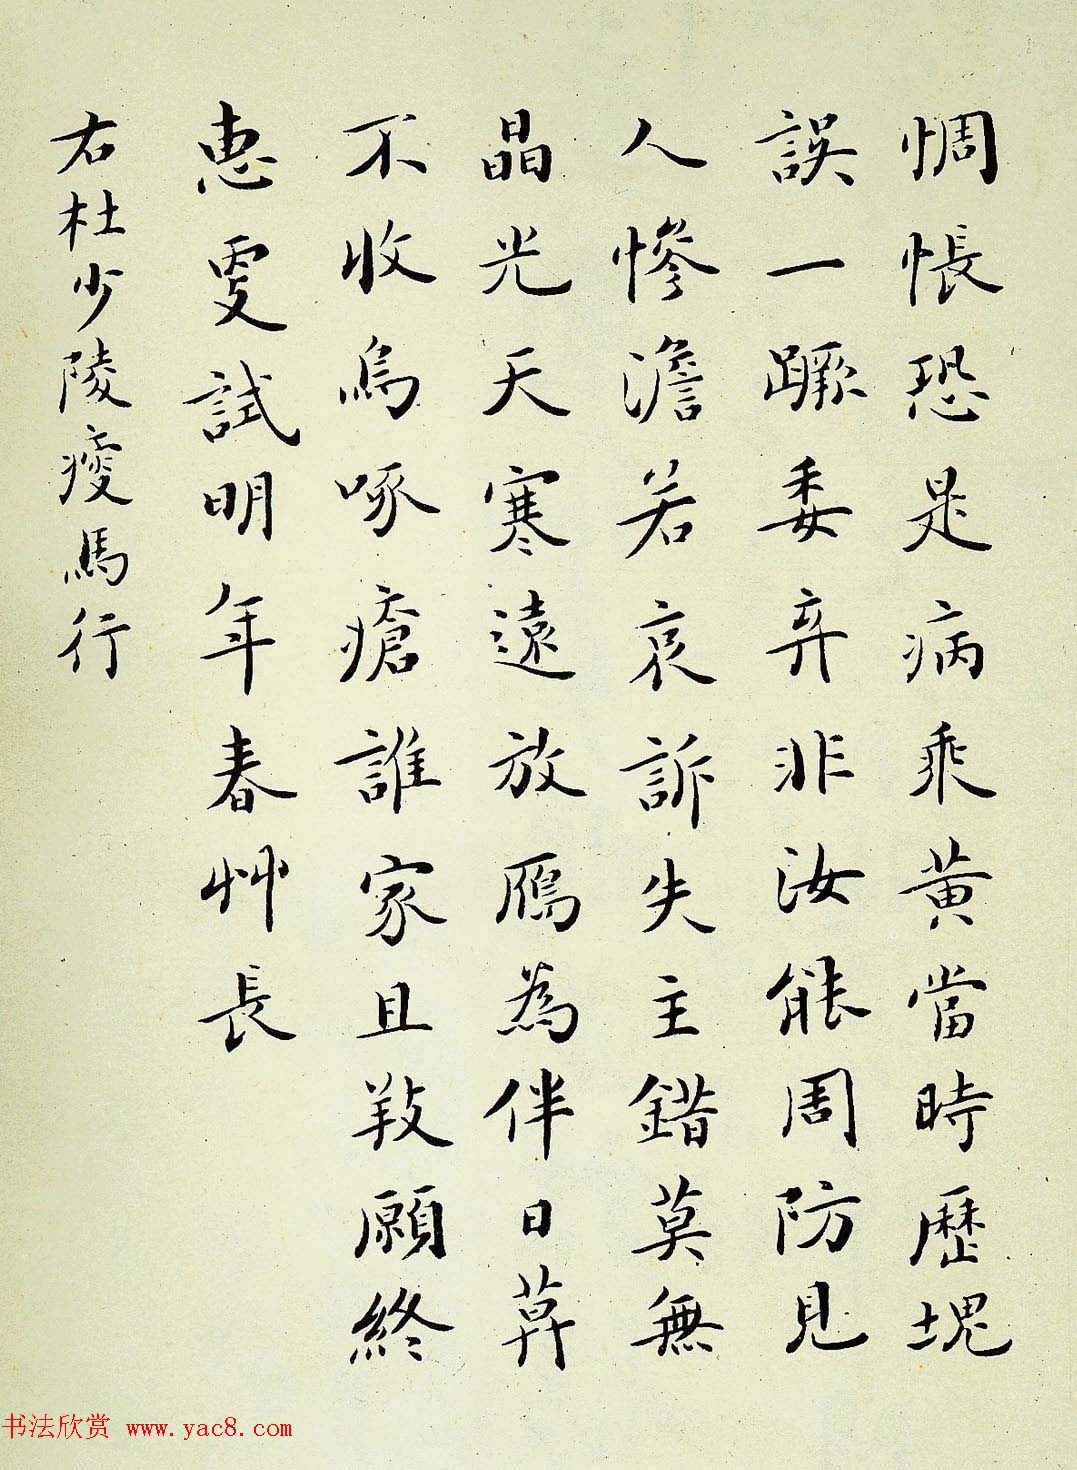 惆悵恐是病乘黃當時歷塊
誤一蹶委弃非汝能周防見
人慘澹若哀訴失主錯莫無
晶光天寒遠放鴈為伴日暮
不收烏啄瘡誰家且𢼝願終
惠更試明年春艸長
右杜少陵瘦馬行
书法欣赏 www.yac8.com